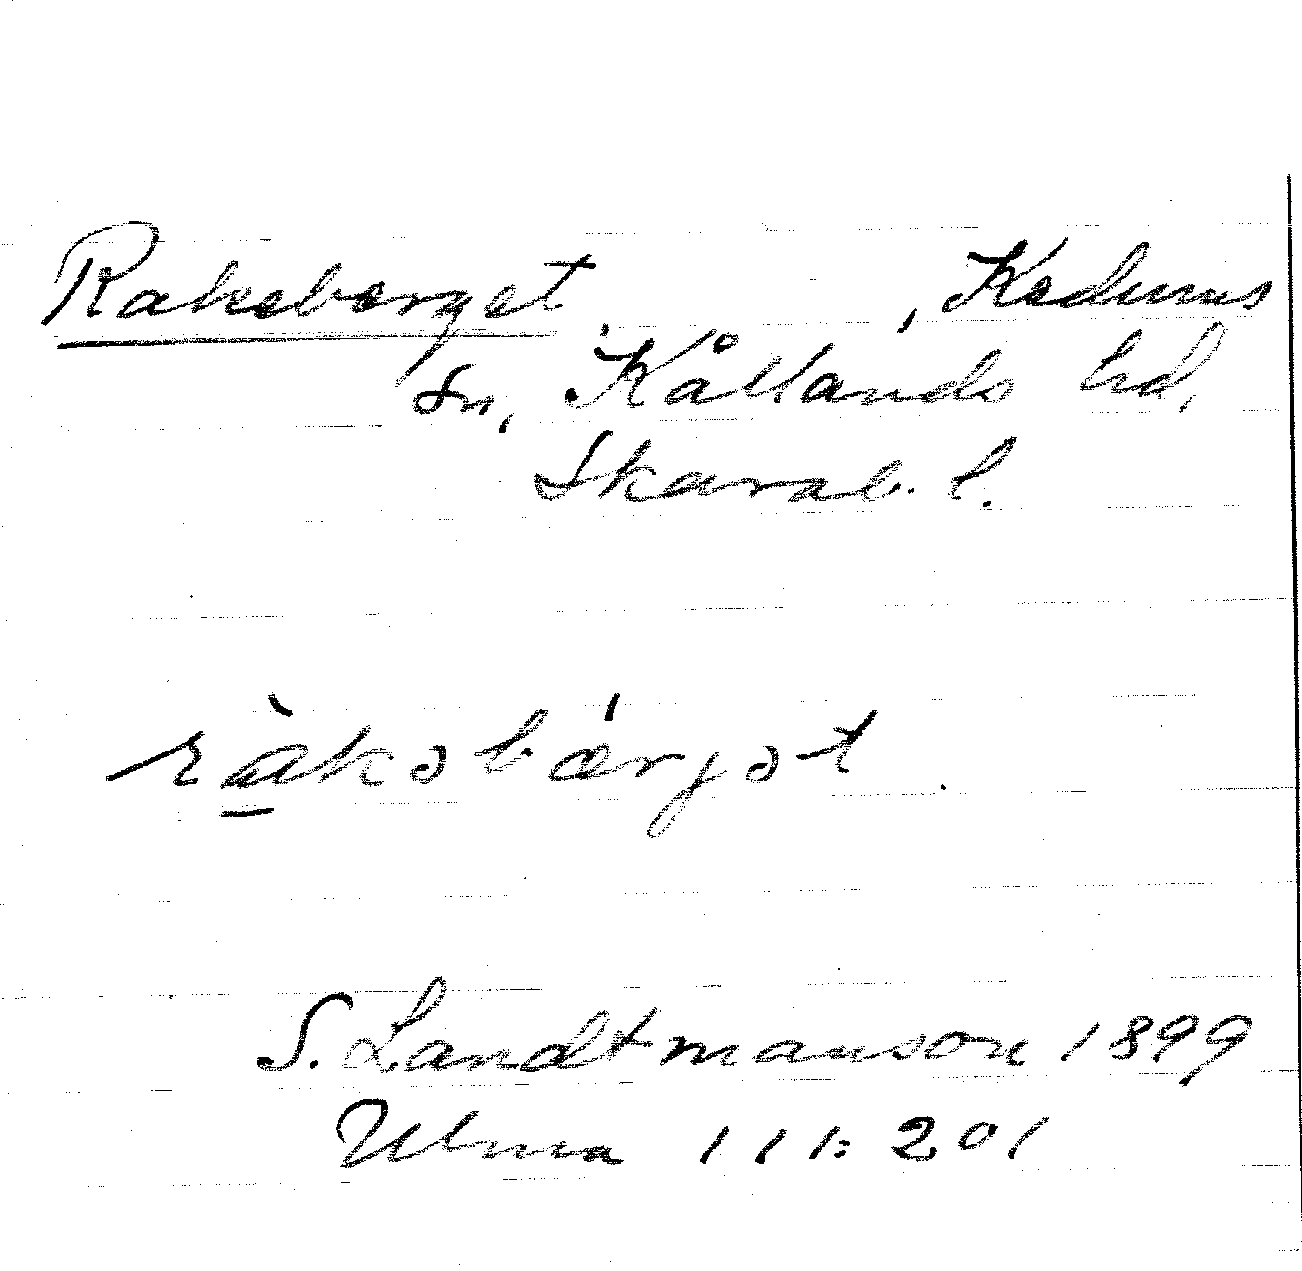 Rakeberget, Kedums
sn, Kållands hd,
Skarab. l.
ràkəbǽrgət
S. Landtmanson 1899
Ulma 111:201